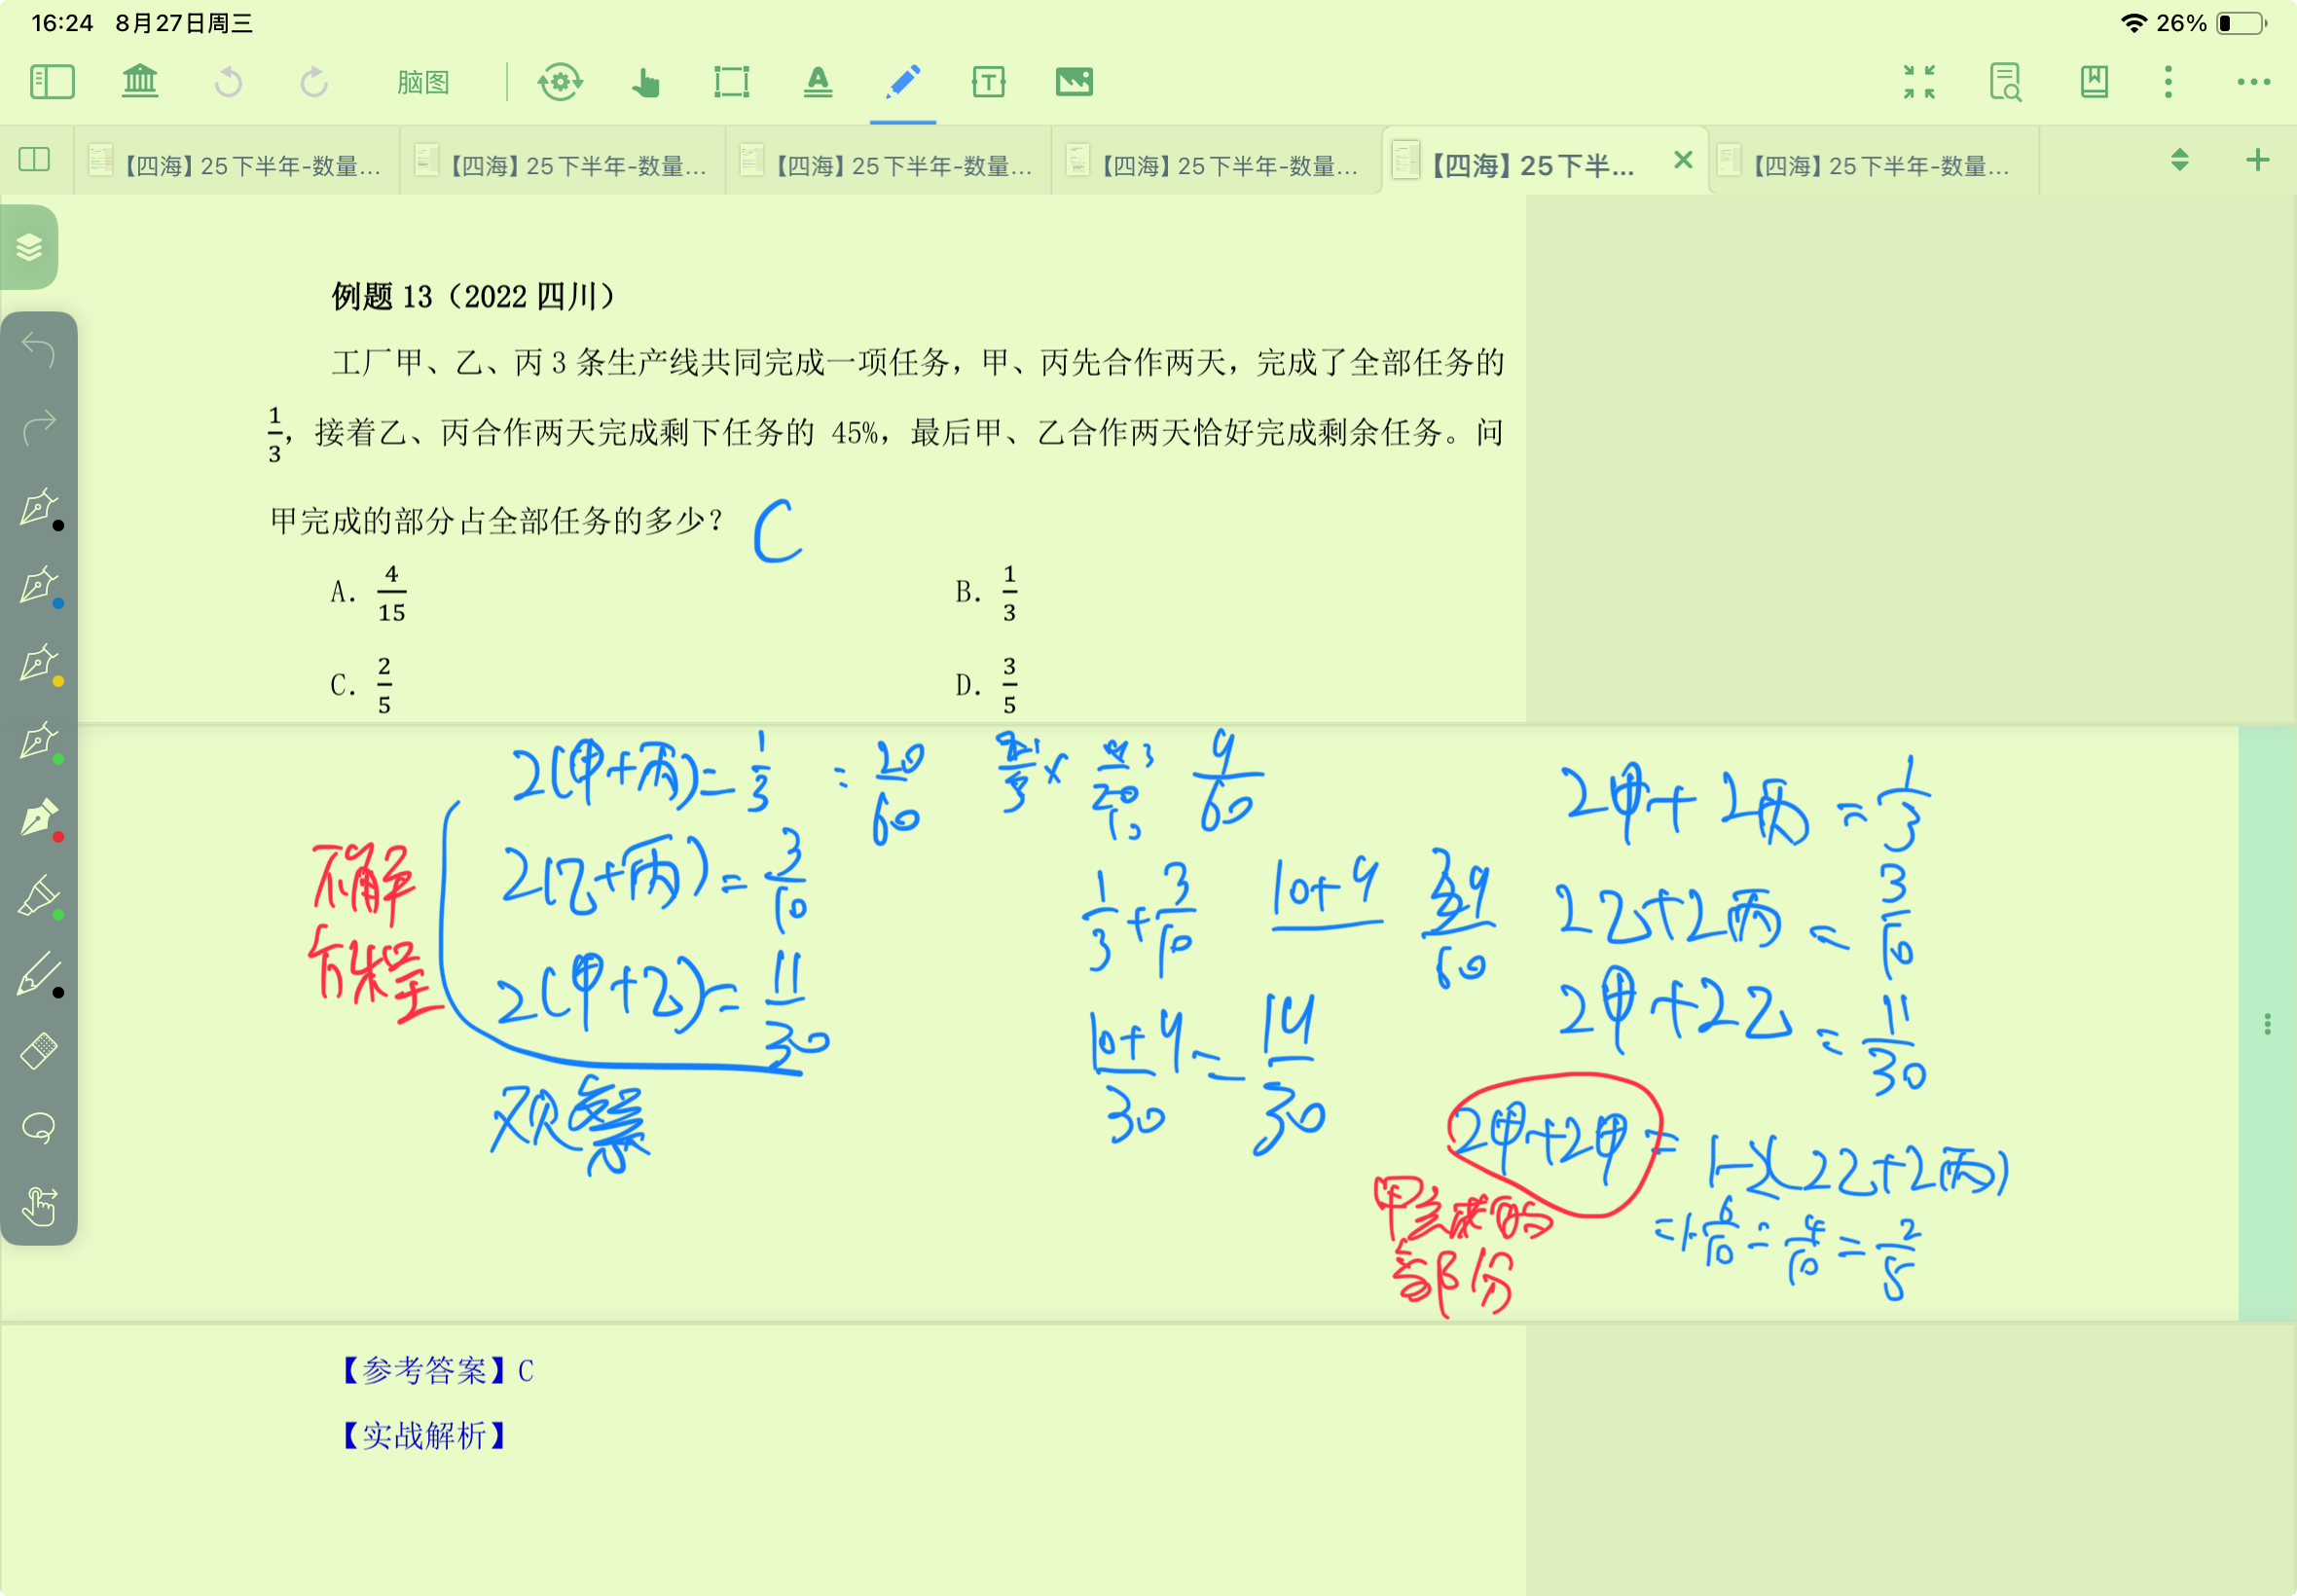 16:24 8月27日周三 26%
脑图
【四海】25下半年-数量... 【四海】25下半年-数量... 【四海】25下半年-数量... 【四海】25下半年-数量... 【四海】25下半... 【四海】25下半年-数量...
例题 13（2022 四川）
工厂甲、乙、丙 3 条生产线共同完成一项任务，甲、丙先合作两天，完成了全部任务的
1/3，接着乙、丙合作两天完成剩下任务的 45%，最后甲、乙合作两天恰好完成剩余任务。问
甲完成的部分占全部任务的多少？ C
A. 4/15 B. 1/3
C. 2/5 D. 3/5
2(甲+丙)=1/3 =20/60
9/60
2(乙+丙)=3/10
2(甲+乙)=11/30
不解
方程
观察
1/3+3/10
10+9
10+9/30=19/30
2甲+2丙=1/3
2乙+2丙=3/10
2甲+2乙=11/30
2甲+2甲=1-2(2乙+2丙)
=1-6/10=4/10=2/5
甲完成的
部分
【参考答案】C
【实战解析】